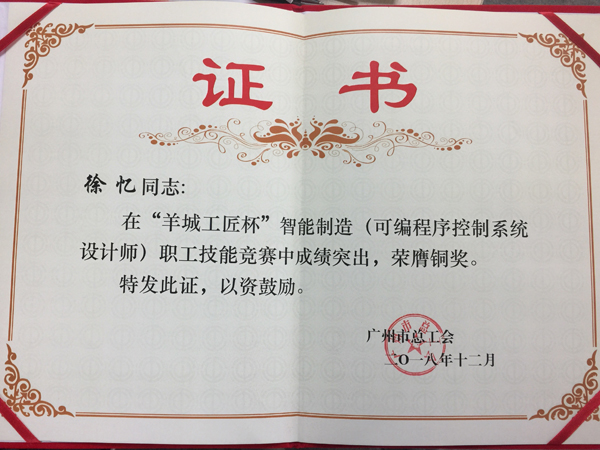 证书
徐忆同志:
在“羊城工匠杯”智能制造（可编程序控制系统
设计师）职工技能竞赛中成绩突出，荣膺铜奖。
特发此证，以资鼓励。
广州市总工会
二〇一八年十二月